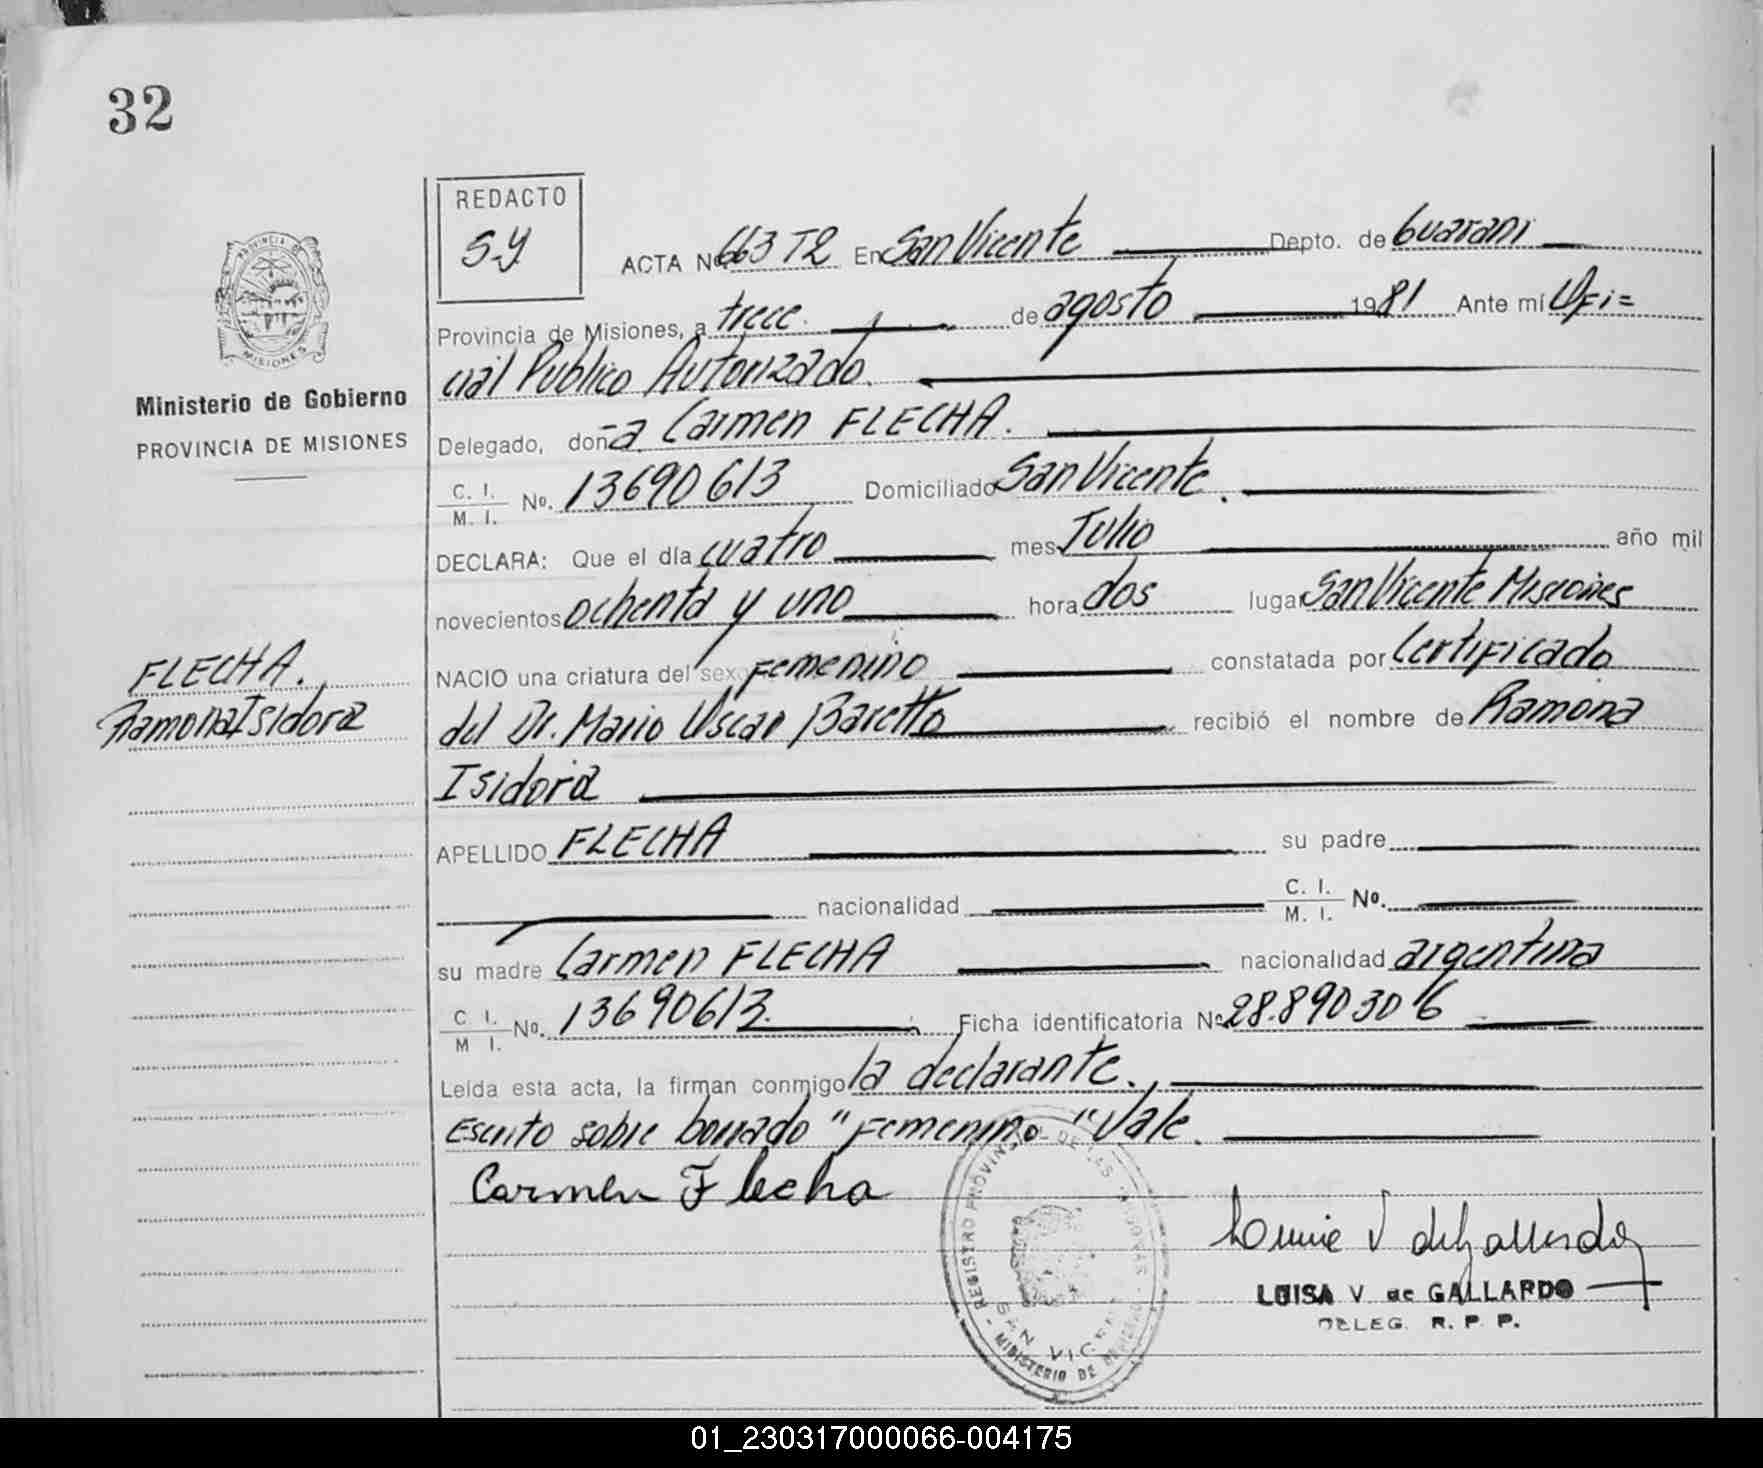 32
REDACTO
S.Y
ACTA Nº 663 T2 En San Vicente Depto. de Guarani
Provincia de Misiones, a trece de agosto 1981 Ante mí Ofi=
cial Publico Autorizado.
Delegado, doña Carmen FLECHA.
C. I.
M. I. Nº. 13690613 Domiciliado San Vicente.
Ministerio de Gobierno
PROVINCIA DE MISIONES
PROVINCIA DE
MISIONES
DECLARA: Que el día cuatro mes Julio año mil
novecientos ochenta y uno hora dos lugar San Vicente Misiones
FLECHA.
Ramona Isidora
NACIO una criatura del sexo Femenino constatada por Certificado
del Dr. Mario Oscar Baretto recibió el nombre de Ramona
Isidora
APELLIDO FLECHA su padre
nacionalidad C. I.
M. I. Nº.
su madre Carmen FLECHA nacionalidad argentina
C. I.
M. I. Nº. 13690613. Ficha identificatoria Nº 28.890306
Leída esta acta, la firman conmigo la declarante.
Escrito sobre borrado "Femenino" Vale.
Carmen Flecha
REGISTRO PROVINCIAL DE LAS PERSONAS
SAN VICENTE
MINISTERIO DE GOBIERNO
LUISA V de GALLARDO
DELEG. R. P. P.
01_230317000066-004175